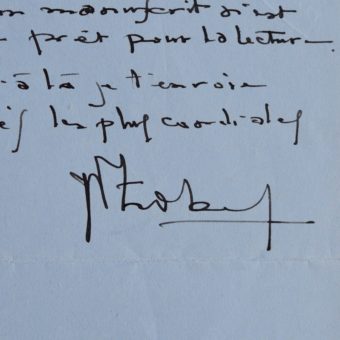 on manuscrit s'est
prêt pour la lecture.
à là je t'envoie
les plus cordiales